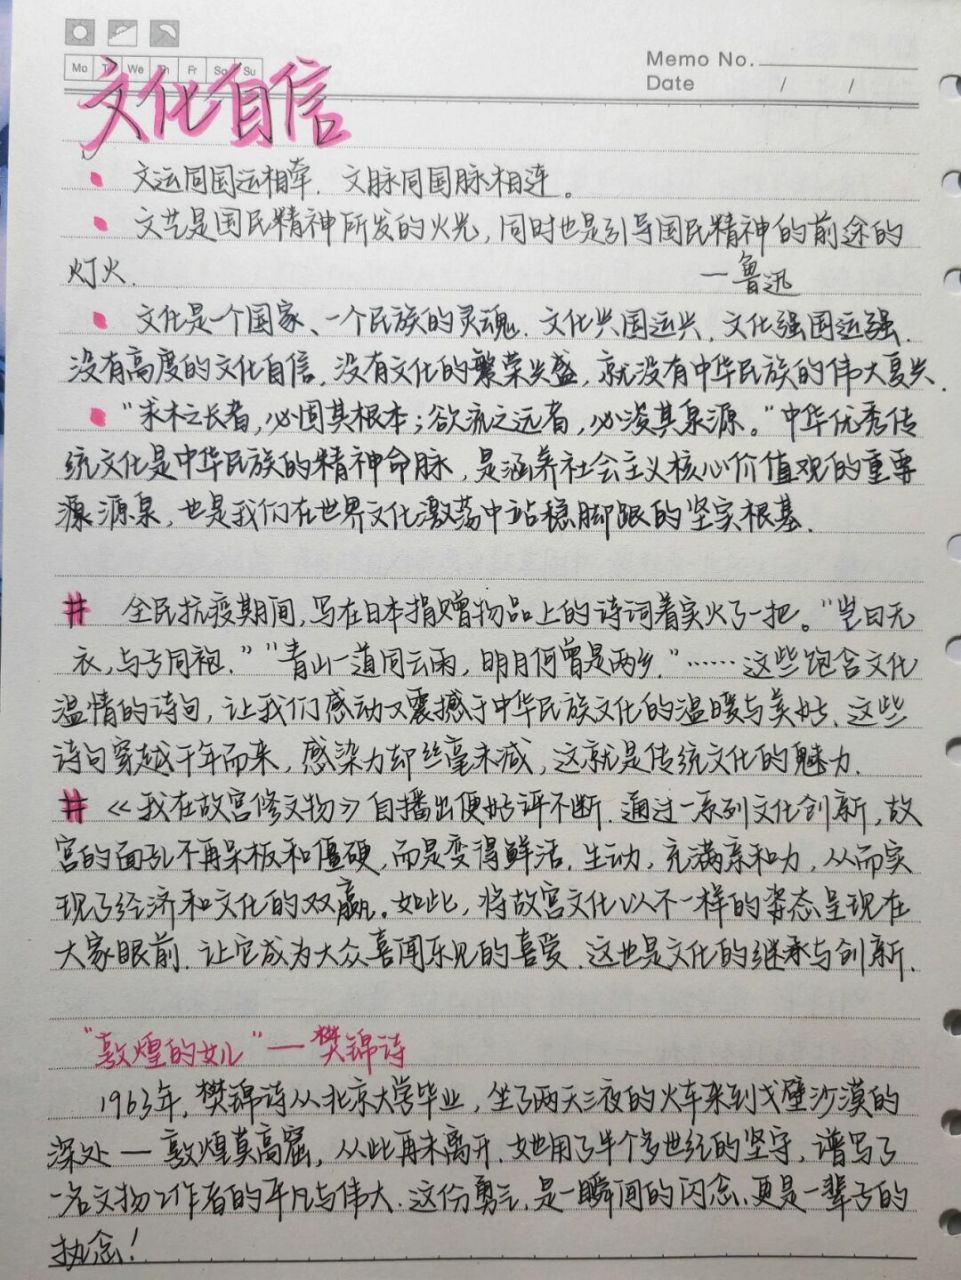 Memo No.
Mo Tu We Th Fr Sa Su
Date / /
文化自信
• 文运同国运相牵.文脉同国脉相连。
• 文艺是国民精神所发的火光,同时也是引导国民精神的前途的
灯火. —鲁迅
• 文化是一个国家、一个民族的灵魂.文化兴国运兴.文化强国运强.
没有高度的文化自信.没有文化的繁荣兴盛,就没有中华民族的伟大复兴.
• "求木之长者,必固其根本;欲流之远者,必浚其泉源。"中华优秀传
统文化是中华民族的精神命脉,是涵养社会主义核心价值观的重要
源源泉,也是我们在世界文化激荡中站稳脚跟的坚实根基.
# 全民抗疫期间,写在日本捐赠物品上的诗词着实火了一把。"岂曰无
衣,与子同袍.""青山一道同云雨,明月何曾是两乡."……这些饱含文化
温情的诗句,让我们感动又震撼于中华民族文化的温暖与美好.这些
诗句穿越千年而来,感染力却丝毫未减,这就是传统文化的魅力.
# 《我在故宫修文物》自播出便好评不断.通过一系列文化创新,故
宫的面孔不再呆板和僵硬,而是变得鲜活.生动,充满亲和力,从而实
现了经济和文化的双赢。如此,将故宫文化以不一样的姿态呈现在
大家眼前.让它成为大众喜闻乐见的喜爱.这也是文化的继承与创新.
"敦煌的女儿"—樊锦诗
1963年,樊锦诗从北京大学毕业,坐了两天三夜的火车来到戈壁沙漠的
深处—敦煌莫高窟,从此再未离开.她用了半个多世纪的坚守,谱写了
一名文物工作者的平凡与伟大.这份勇气,是一瞬间的闪念,更是一辈子的
执念!